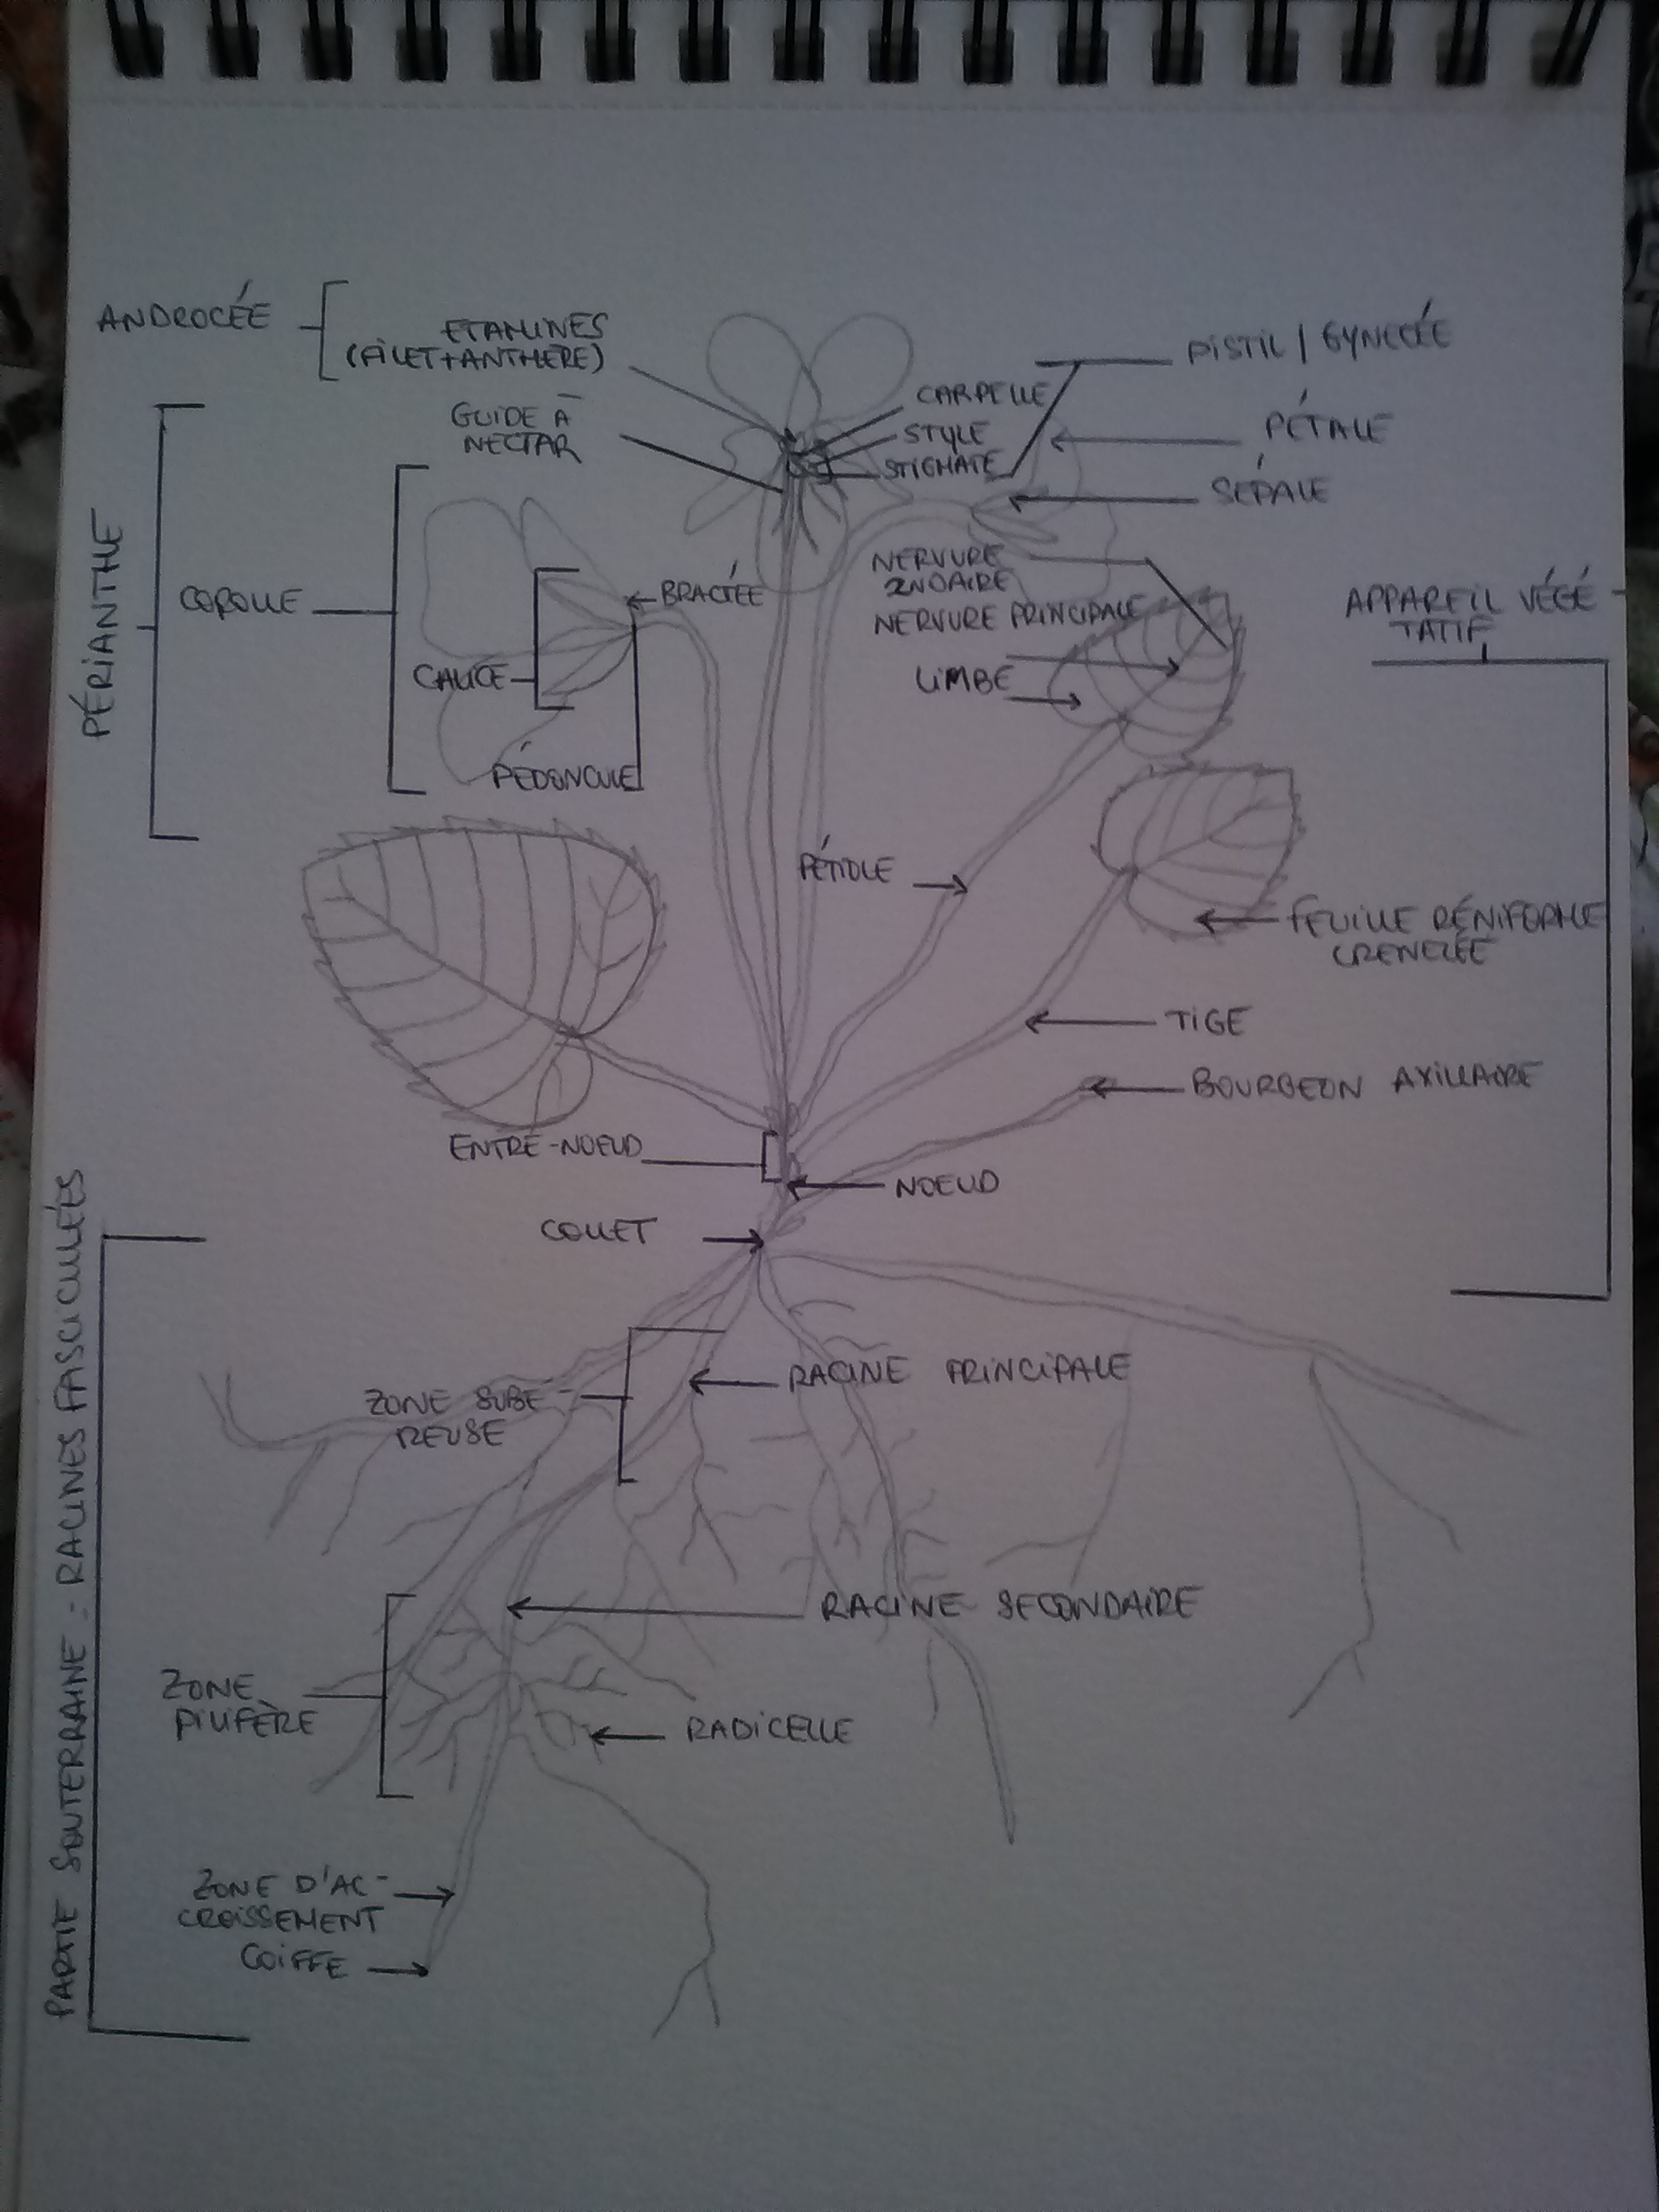 ANDROCÉE
ETAMINES
(FILET+ANTHERE)
PISTIL / GYNECÉE
CARPELLE
GUIDE À
NECTAR
STYLE
PÉTALE
STIGMATE
SÉPALE
PÉRIANTHE
COROLLE
BRACTÉE
CALICE
PÉDONCULE
NERVURE
2NDAIRE
NERVURE PRINCIPALE
LIMBE
APPAREIL VÉGÉ
TATIF
PÉTIOLE
FEUILLE RÉNIFORME
CRENELÉE
TIGE
BOURGEON AXILLAIRE
ENTRE-NOEUD
NOEUD
COLLET
PARTIE SOUTERRAINE : RACINES FASCICULÉES
RACINE PRINCIPALE
ZONE SUBE-
REUSE
RACINE SECONDAIRE
ZONE
PILIFÈRE
RADICELLE
ZONE D'AC-
CROISSEMENT
COIFFE